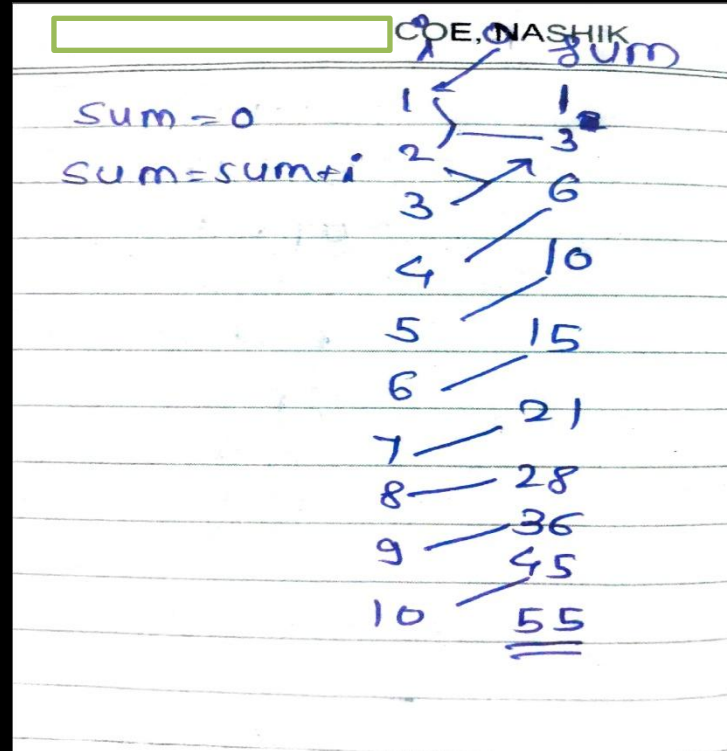 COE, NASHIK
i sum
sum = 0
sum = sum + i
0
1 1
2 3
3 6
4 10
5 15
6 21
7 28
8 36
9 45
10 55